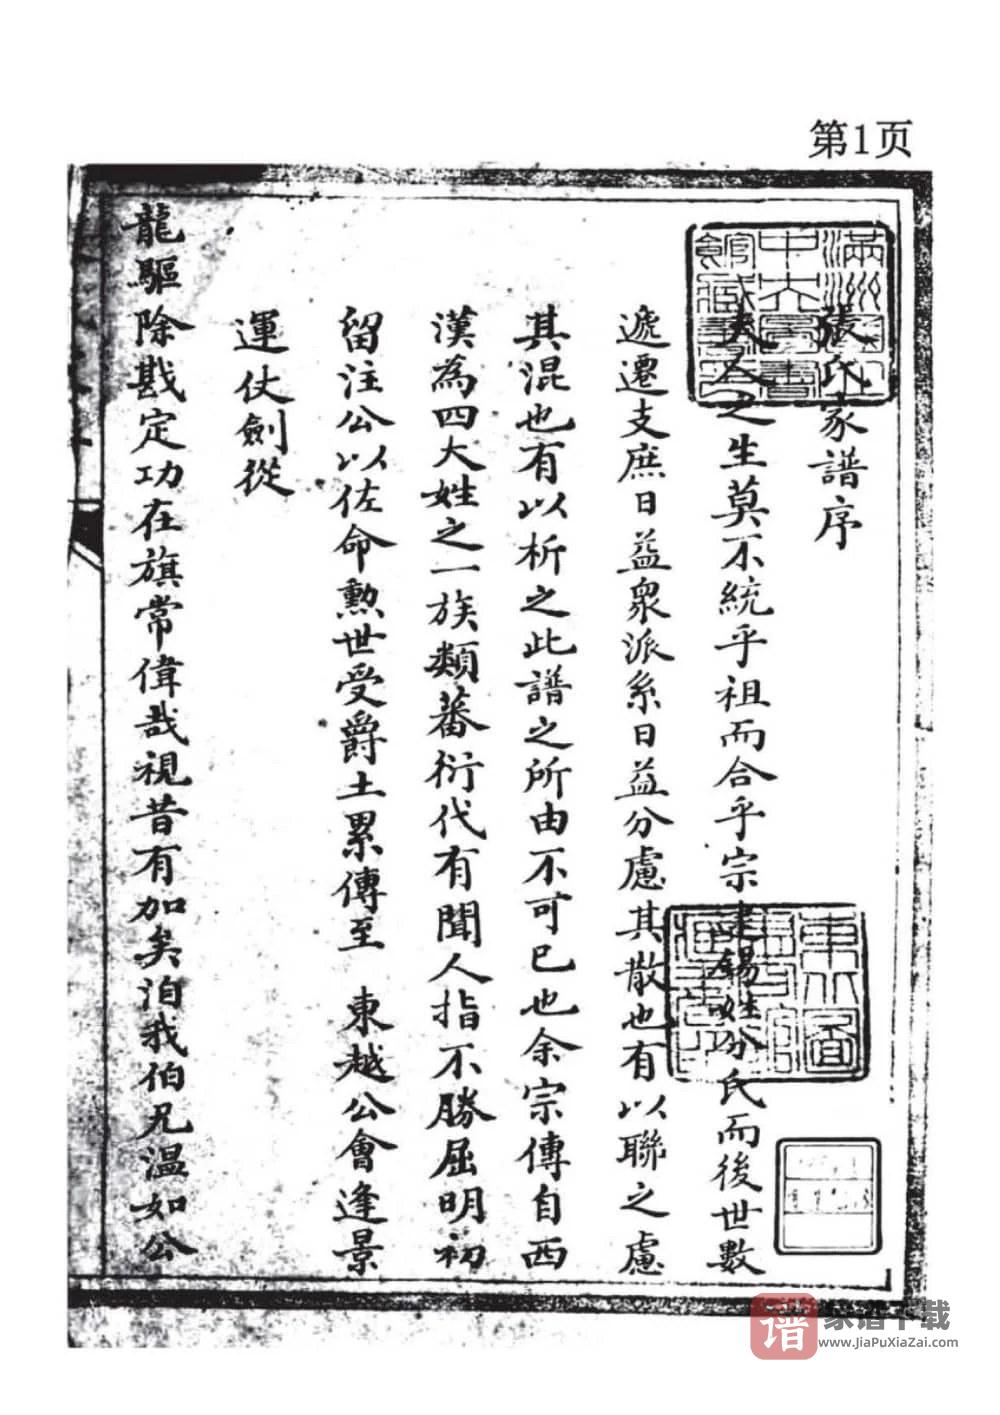 第1页
張氏家譜序
夫人之生莫不統乎祖而合乎宗建錫姓分氏而後世數
遞遷支庶日益衆派系日益分慮其散也有以聯之慮
其混也有以析之此譜之所由不可已也余宗傳自西
漢為四大姓之一族類蕃衍代有聞人指不勝屈明初
留注公以佐命勲世受爵土累傳至 東越公會逢景
運仗劍從
龍驅除戡定功在旗常偉哉視昔有加矣洎我伯兄温如公
滿洲
中央圖書
館藏書
東北圖
譜 家谱下载
www.JiaPuXiaZai.com